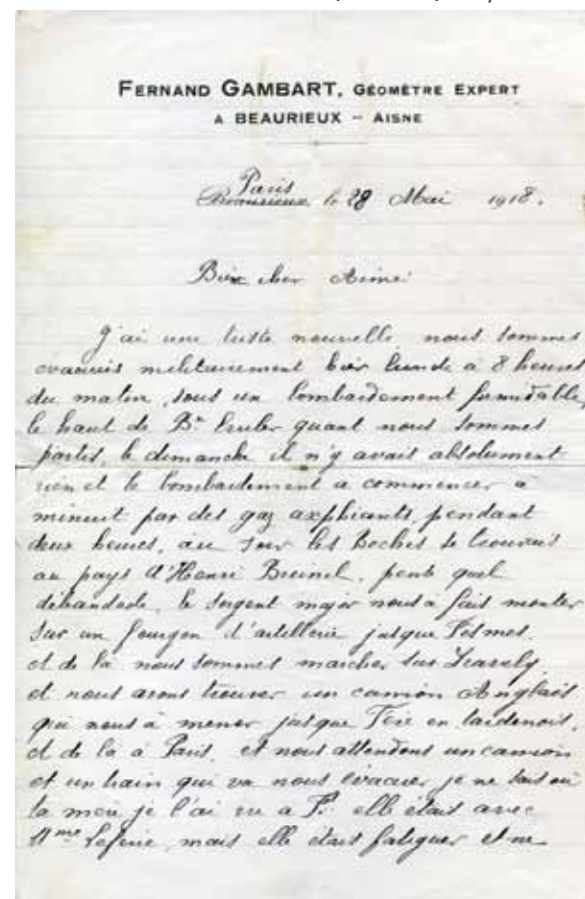 FERNAND GAMBART, GÉOMÈTRE EXPERT
A BEAURIEUX - AISNE
Paris
Beaurieux, le 28 Mai 1918.
Bien cher Aimé
J'ai une triste nouvelle nous sommes
évacués militairement hier lundi à 8 heures
du matin, sous un bombardement formidable,
le haut de Bx bruler quant nous sommes
partis, le dimanche il n'y avait absolument
rien et le bombardement a commencer à
minuit par des gaz axphiants, pendant
deux heures, au soir les Boches se trouvait
au pays d'Henri, pense quel
débandade, le sergent major nous a fait monter
sur un fourgon d'artillerie jusque Fismes
et de là nous sommes marcher sur
et nous avons trouver un camion Anglais
qui nous à mener jusque Fère en Tardenois,
et de la à Paris, et nous attendons un camion
et un train qui va nous évacuer je ne sais où
la mère je l'ai vu a F. elle était avec
Mme, mais elle était fatiguer et ne